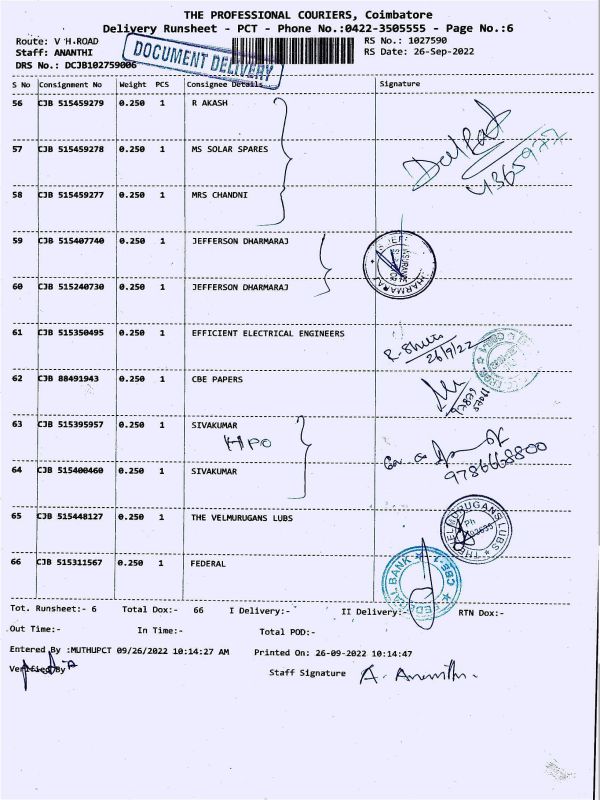 THE PROFESSIONAL COURIERS, Coimbatore
Delivery Runsheet - PCT - Phone No.:0422-3505555 - Page No.:6
Route: V H.ROAD RS No.: 1027590
Staff: ANANTHI RS Date: 26-Sep-2022
DRS No.: DCJB102759006
DOCUMENT DELIVERY
S No Consignment No Weight PCS Consignee Details Signature
56 CJB 515459279 0.250 1 R AKASH
57 CJB 515459278 0.250 1 MS SOLAR SPARES
58 CJB 515459277 0.250 1 MRS CHANDNI
59 CJB 515407740 0.250 1 JEFFERSON DHARMARAJ
60 CJB 515240730 0.250 1 JEFFERSON DHARMARAJ
61 CJB 515350495 0.250 1 EFFICIENT ELECTRICAL ENGINEERS
26/9/22
62 CJB 88491943 0.250 1 CBE PAPERS
63 CJB 515395957 0.250 1 SIVAKUMAR
HPO
64 CJB 515400460 0.250 1 SIVAKUMAR
9786668800
65 CJB 515448127 0.250 1 THE VELMURUGANS LUBS
THE VELMURUGANS LUBS
66 CJB 515311567 0.250 1 FEDERAL
FEDERAL BANK CBE-1
Tot. Runsheet:- 6 Total Dox:- 66 I Delivery:- II Delivery:- RTN Dox:-
Out Time:- In Time:- Total POD:-
Entered By :MUTHUPCT 09/26/2022 10:14:27 AM Printed On: 26-09-2022 10:14:47
Verified By Staff Signature A. Ananthi.